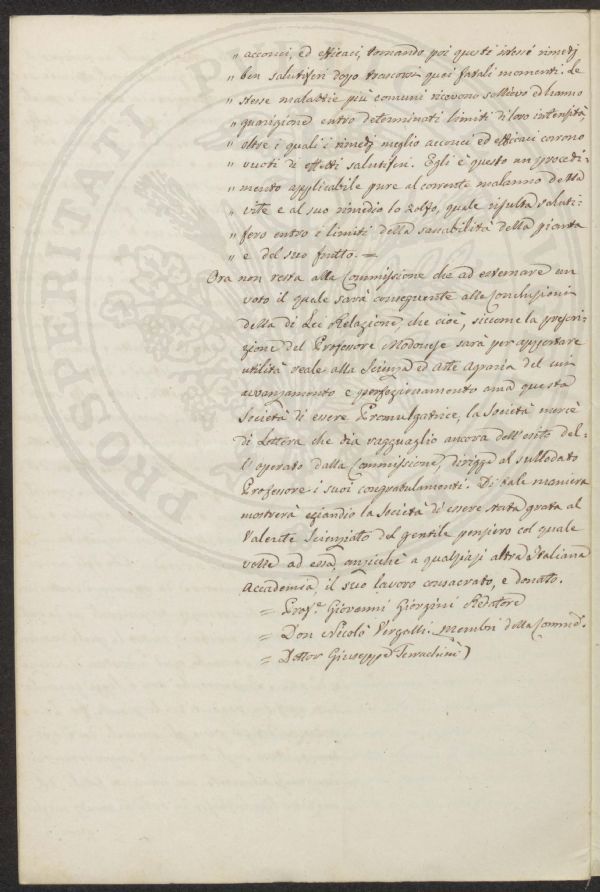 " acconci, ed efficaci, tornando poi questi istessi rimedj
" ben salutiferi dopo trascorsi quei fatali momenti. Le
" stesse malattie più comuni ricevono sollievo ed hanno
" guarigione entro determinati limiti di loro intensità,
" oltre i quali i rimedj meglio acconci ed efficaci corrono
" vuoti di effetti salutiferi. Egli è questo un procedi-
" mento applicabile pure al corrente malanno della
" vite e al suo rimedio lo zolfo, quale risulta saluti-
" fero entro i limiti della sanabilità della pianta
" e del suo frutto. =
Ora non resta alla Commissione che ad esternare un
voto il quale sarà conseguente alle conclusioni
della di Lei Relazione, che cioè, siccome la prescri-
zione del Professore Modonese sarà per apportare
utilità reale alla Scienza ed Arte Agraria del cui
avanzamento e perfezionamento ama questa
Società di essere Promulgatrice, la Società mercè
di Lettera che dia ragguaglio ancora dell'esito del-
l'operato dalla Commissione, dirigga al sullodato
Professore i suoi congratulamenti. Di tale maniera
mostrerà eziandio la Società di essere stata grata al
Valente Scienziato del gentile pensiero col quale
volle ad essa, anzichè a qualsiasi altra Italiana
Accademia, il suo lavoro consacrato, e donato.
= Prof.e Giovanni Giorgini Redatore
= Don Nicolò Vergalli. Membri della Commis.
= Dottor Giuseppe
PROSPERITATI